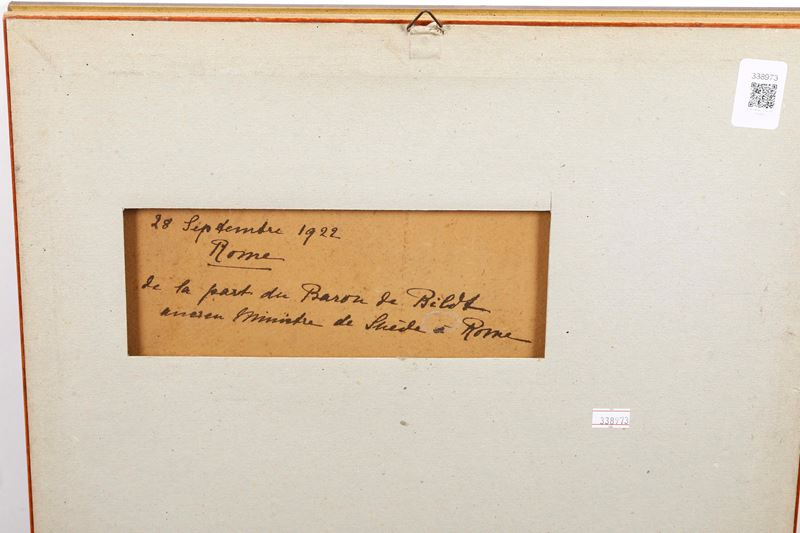 338973
28 Septembre 1922
Rome
de la part du Baron de Bildt
ancien Ministre de Suède à Rome
338973